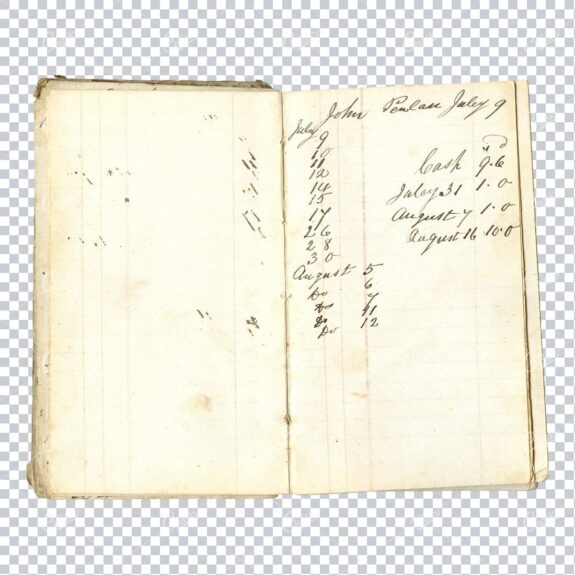 John Penlan July 9
July 9
10
11
12
14
15
17
26
28
30
August 5
Do 6
Do 7
Do 11
Do 12
Cash 9.6
July 31 1.0
August 7 1.0
August 16 10.0